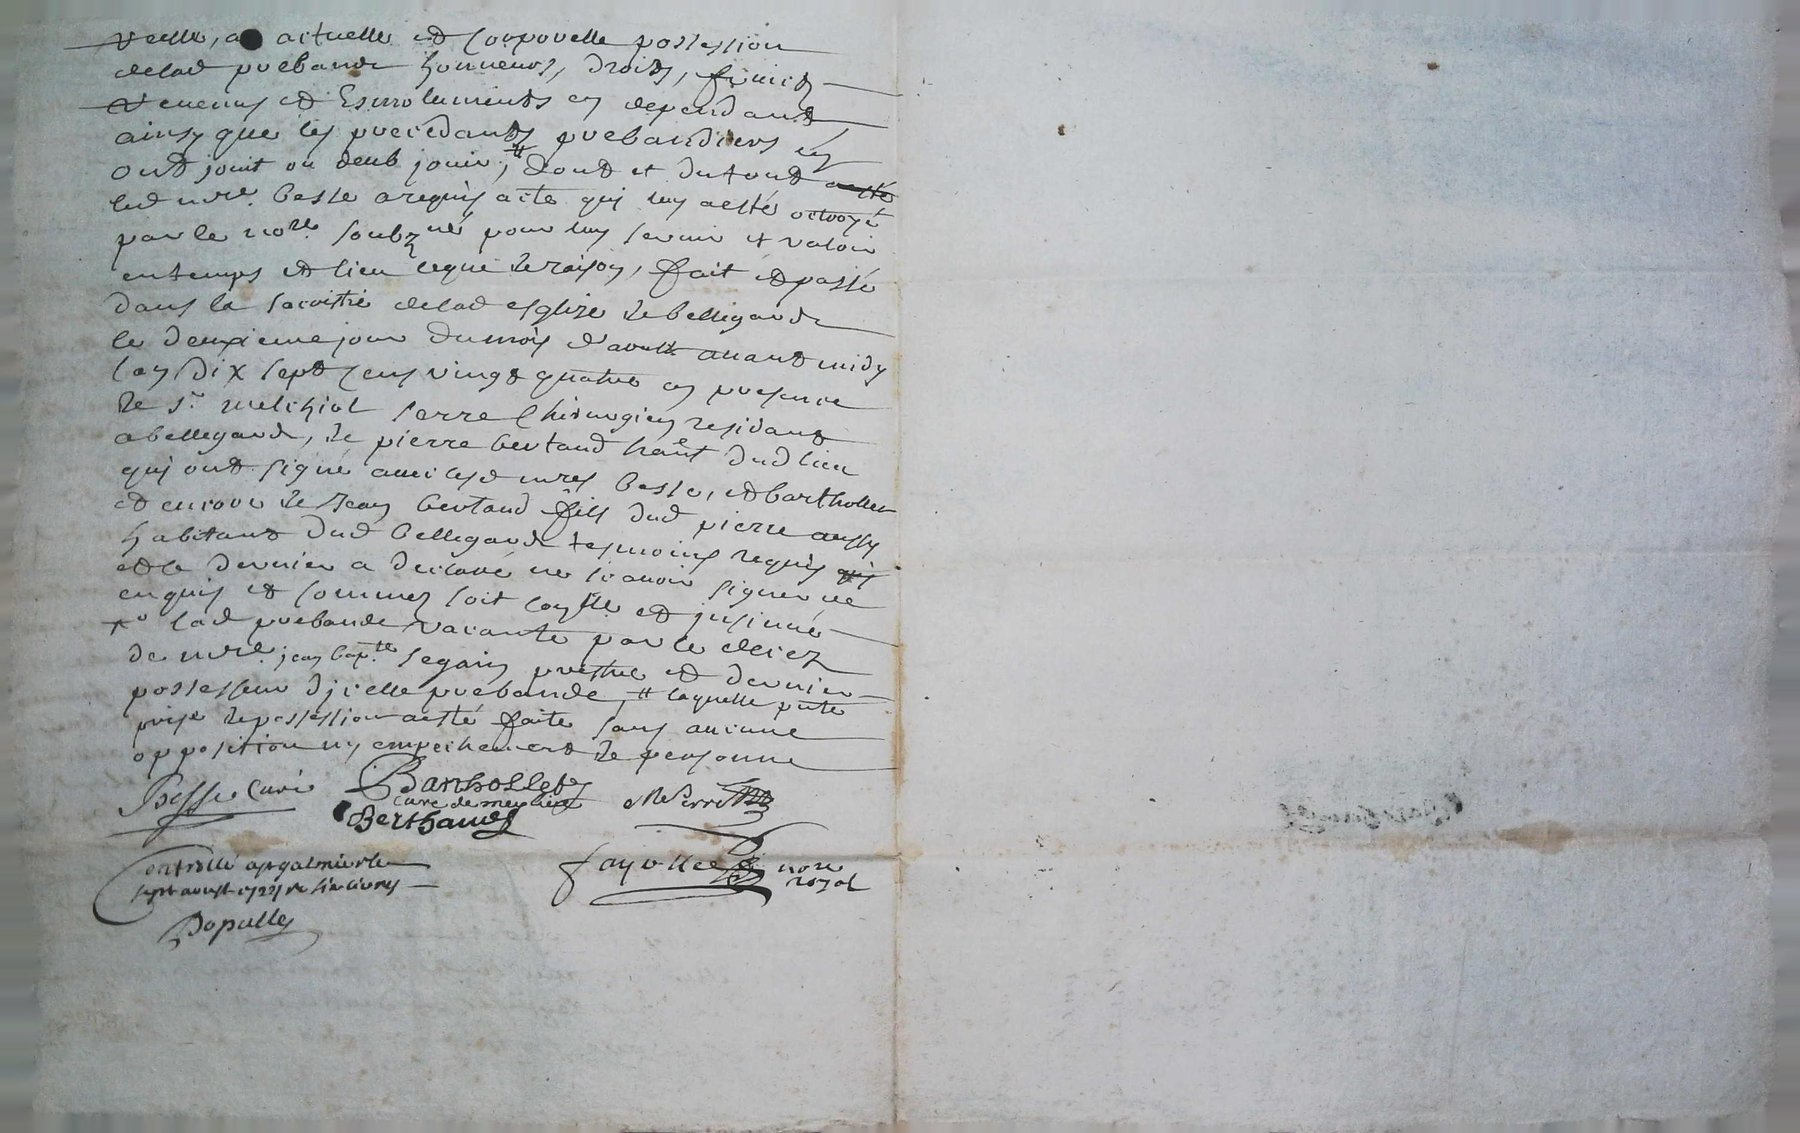 reelle, actuelle et corporelle possession
delad prebande honneurs, droits, fruicts
revenus et Esmoluments en dependants
ainsy que les precedants prebandiers en
ont jouit ou deub jouir, # dont et du tout a esté
led mre. besse a requis acte quy luy a esté octroyé
par le nore. soubzné pour luy servir et valoir
en temps et lieu ce que de raison, fait et passé
dans la sacristie delad esglize de bellegarde
le deuxieme jour du mois d'aoust avant midy
l'an dix sept cens vingt quatre en presence
de sr. melchiol serre Chirurgien residant
a bellegarde, de pierre bertaud hant dud lieu
quy ont signé avec lesd mres besse, et barthollet
et encore de Jean bertaud fils dud pierre aussy
habitant dud bellegarde tesmoins requis
et le dernier a declaré ne scavoir signer de ce
enquis et sommez soit conllé et insinué
lad prebande vacante par le decez
de mre. jean bapte. segain prestre et dernier
possesseur d'icelle prebande # laquelle pnte
prise de possession a esté faite sans aucune
opposition ny empechement de personne
Besse Curé Barthollet
curé de meylieu
Berthaud MeSerre
Controllé a st galmier le
sept aoust 1724 six livres
Dopulles
fayolle nore
royal